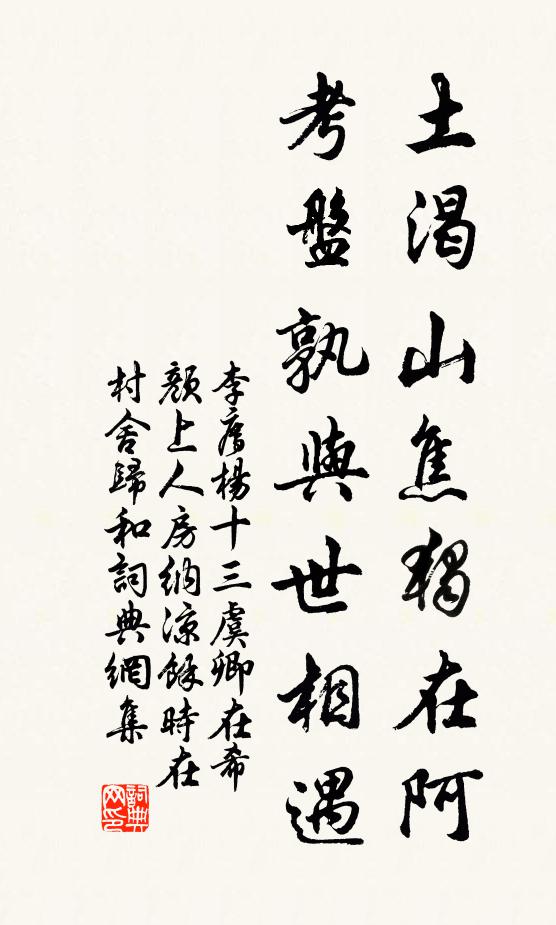 土渴山焦獨在阿
考盤孰與世相遇
李廌楊十三虞卿在希
顏上人房納涼餘時在
村舍歸和詞典網集
詞典
网印